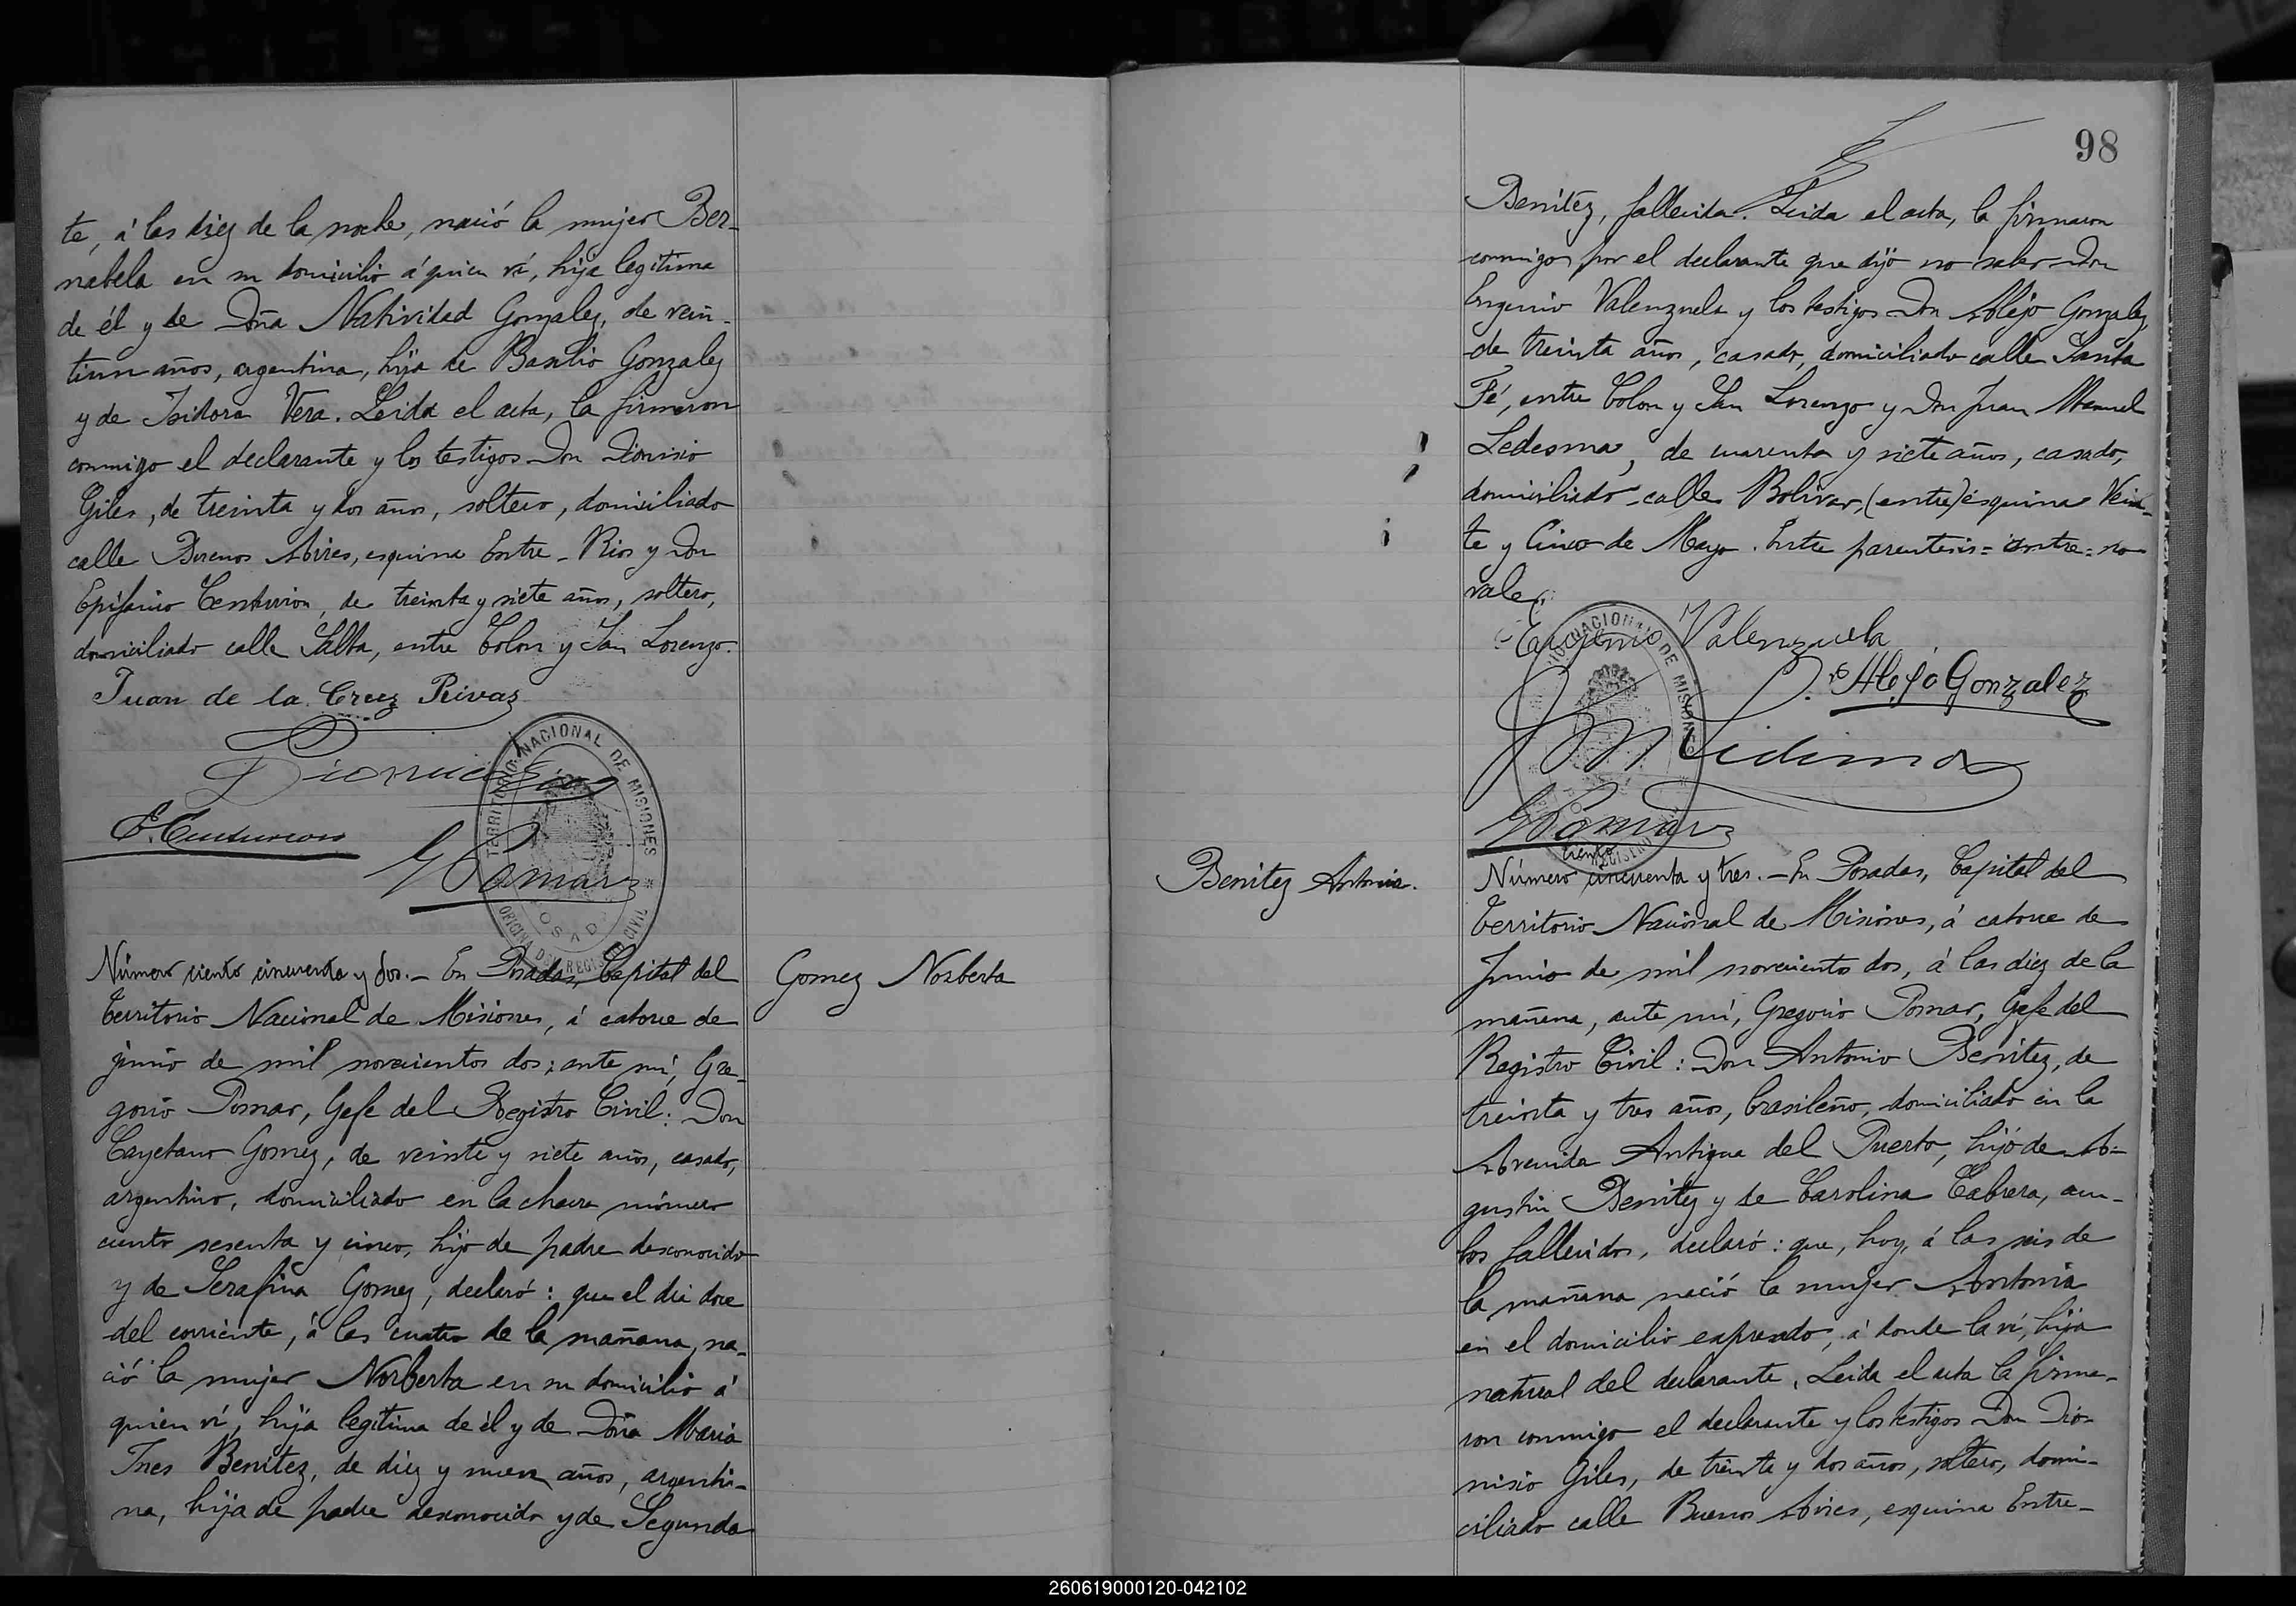 te, á las diez de la noche, nació la mujer Ber-
nabela en su domicilio á quien ví, hija legítima
de él y de Doña Natividad Gonzalez, de vein-
tiun años, argentina, hija de Basilio Gonzalez
y de Isidora Vera. Leida el acta, la firmaron
conmigo el declarante y los testigos Don Dionisio
Giles, de treinta y dos años, soltero, domiciliado
calle Buenos Aires, esquina Entre-Rios y Don
Epifanio Centurion, de treinta y siete años, soltero,
domiciliado calle Salta, entre Colon y San Lorenzo.
Juan de la Cruz Rivas
Dionicio Giles
E. Centurion
G Pomar
TERRITORIO NACIONAL DE MISIONES
OFICINA DEL REGISTRO CIVIL
POSADAS
Número ciento cincuenta y dos.- En Posadas, Capital del
Territorio Nacional de Misiones, á catorce de
junio de mil novecientos dos; ante mí, Gre-
gorio Pomar, Gefe del Registro Civil: Don
Cayetano Gomez, de veinte y siete años, casado,
argentino, domiciliado en la chacra número
ciento sesenta y cinco, hijo de padre desconocido
y de Serafina Gomez, declaró: que el dia doce
del corriente, á las cuatro de la mañana, na-
ció la mujer Norberta en su domicilio á
quien ví, hija legitima de él y de Doña Maria
Ines Benitez, de diez y nueve años, argenti-
na, hija de padre desconocido y de Segunda
Gomez Norberta
98
Benitez, fallecida. Leida el acta, la firmaron
conmigo por el declarante que dijo no saber Don
Eugenio Valenzuela y los testigos Don Alejo Gonzalez,
de treinta años, casado, domiciliado calle Santa
Fé, entre Colon y San Lorenzo y Don Juan Manuel
Ledesma, de cuarenta y siete años, casado,
domiciliado calle Bolivar, (entre) esquina Vein-
te y Cinco de Mayo. Entre parentesis = entre = no
vale.
Eugenio Valenzuela
Alejo Gonzalez
J M Ledesma
G Pomar
Benitez Antonia.
ciento
Número cincuenta y tres.- En Posadas, Capital del
Territorio Nacional de Misiones, á catorce de
Junio de mil novecientos dos, á las diez de la
mañana, ante mí, Gregorio Pomar, Gefe del
Registro Civil: Don Antonio Benitez, de
treinta y tres años, brasileño, domiciliado en la
Avenida Antigua del Puerto, hijo de A-
gustin Benitez y de Carolina Cabrera, am-
bos fallecidos, declaró: que, hoy, á las seis de
la mañana nació la mujer Antonia
en el domicilio expresado, á donde la ví, hija
natural del declarante. Leida el acta la firma-
ron conmigo el declarante y los testigos Don Dio-
nisio Giles, de treinta y dos años, soltero, domi-
ciliado calle Buenos Aires, esquina Entre-
260619000120-042102